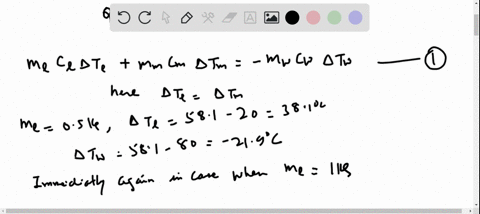 6
mₑ Cₑ ΔTₑ + mₘ Cₘ ΔTₘ = - Mw Cw ΔTw —— ①
here ΔTₑ = ΔTₘ
mₑ = 0.5 kg, ΔTₑ = 58.1 - 20 = 38.1°C
ΔTw = 58.1 - 80 = -21.9°C
Immidietly again in case when mₑ = 1 kg